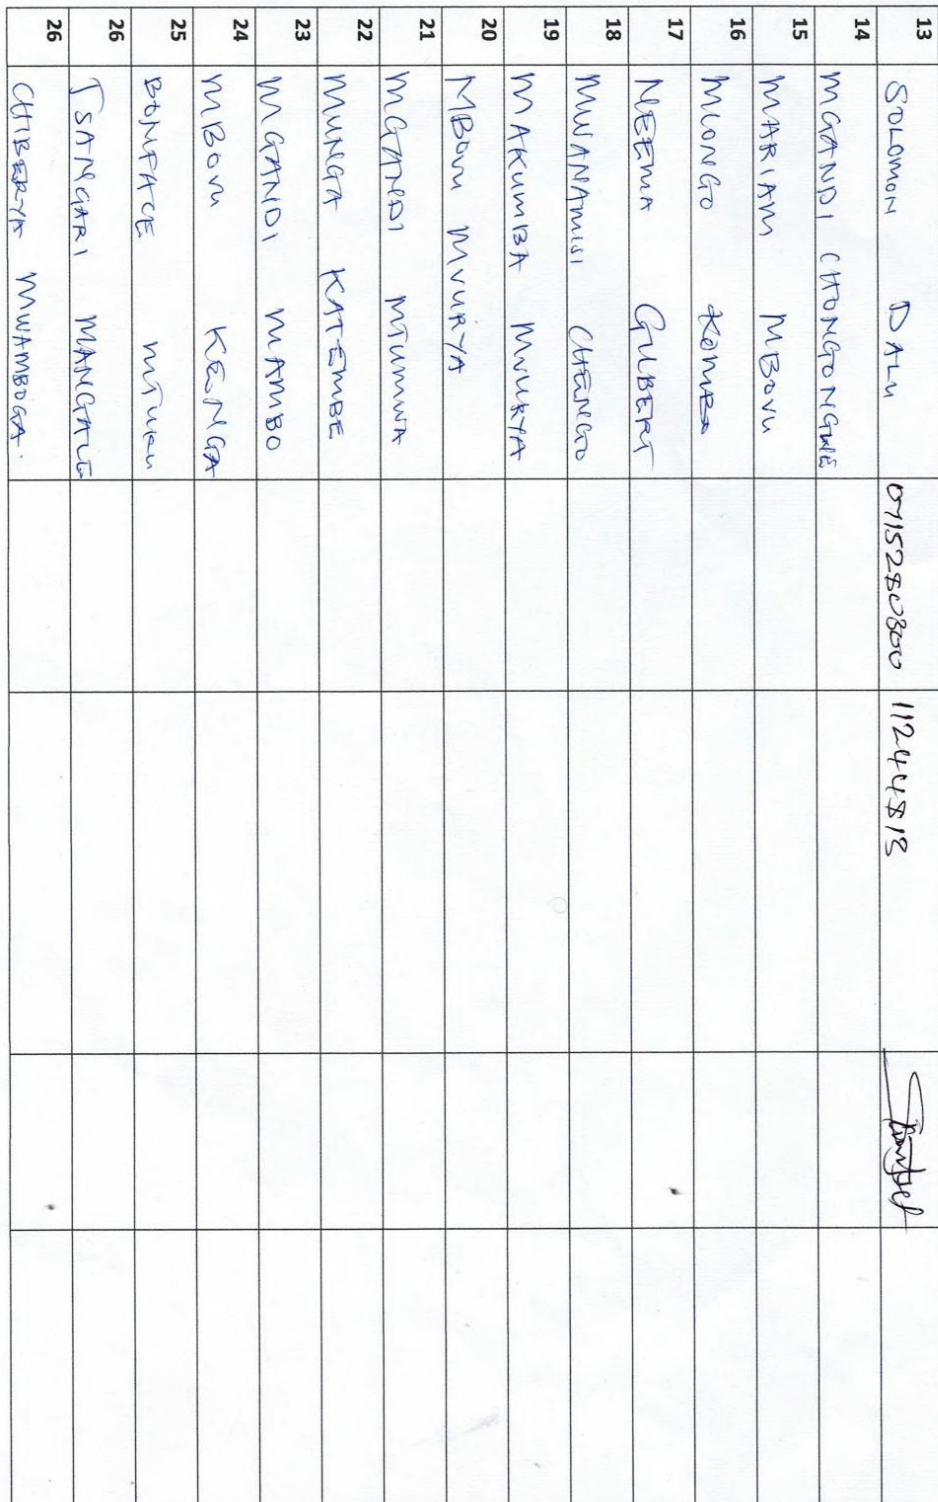 13 SOLOMON DALU 0715280800 11244813
14 MGANDI CHONGONGWE
15 MARIAM MBOVU
16 MLONGO KOMBO
17 NEEMA GILBERT
18 MWANAMISI CHENGO
19 MAKUMBA MVURYA
20 MBOVU MVURYA
21 MGANDI MTUMWA
22 MUNGA KATEMBE
23 MGANDI MAMBO
24 MBOVU KENGA
25 BONFACE MTUKU
26 TSANGARI MANGALE
26 CHIBERYA MWAMBOGA.